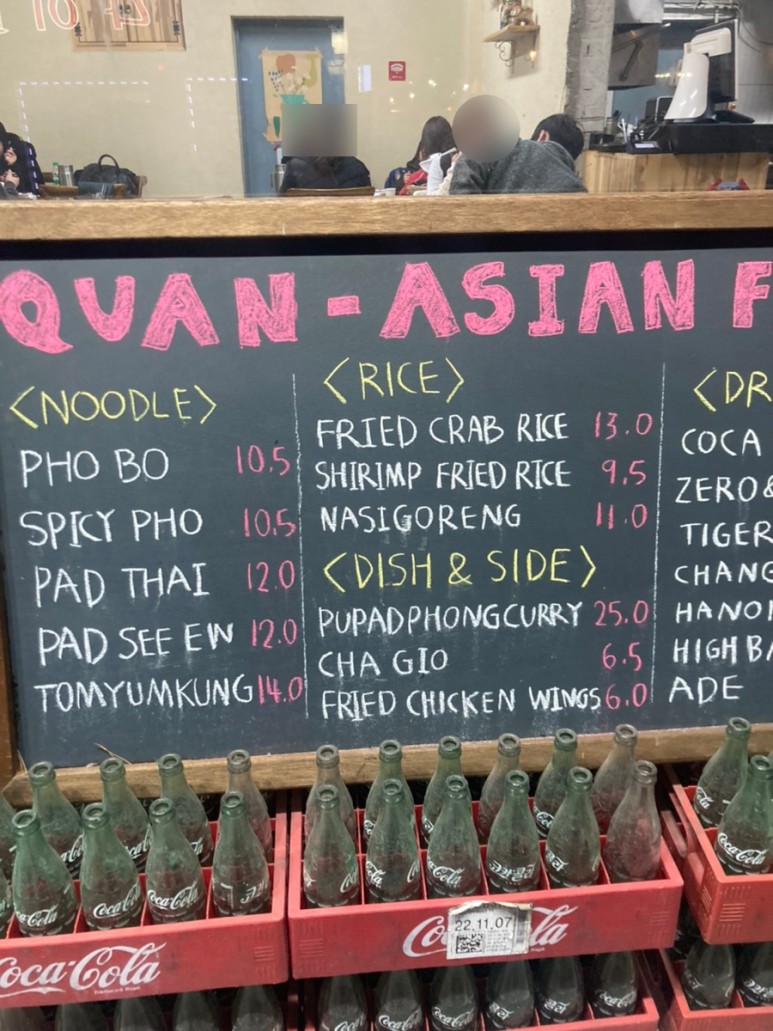 QUAN-ASIAN F
<NOODLE>
PHO BO 10.5
SPICY PHO 10.5
PAD THAI 12.0
PAD SEE EW 12.0
TOMYUMKUNG 14.0
<RICE>
FRIED CRAB RICE 13.0
SHIRIMP FRIED RICE 9.5
NASIGORENG 11.0
<DISH & SIDE>
PUPADPHONGCURRY 25.0
CHA GIO 6.5
FRIED CHICKEN WINGS 6.0
<DR
COCA
ZERO&
TIGER
CHANG
HANOI
HIGHBA
ADE
Coca-Cola
Coca-Cola
22.11.07